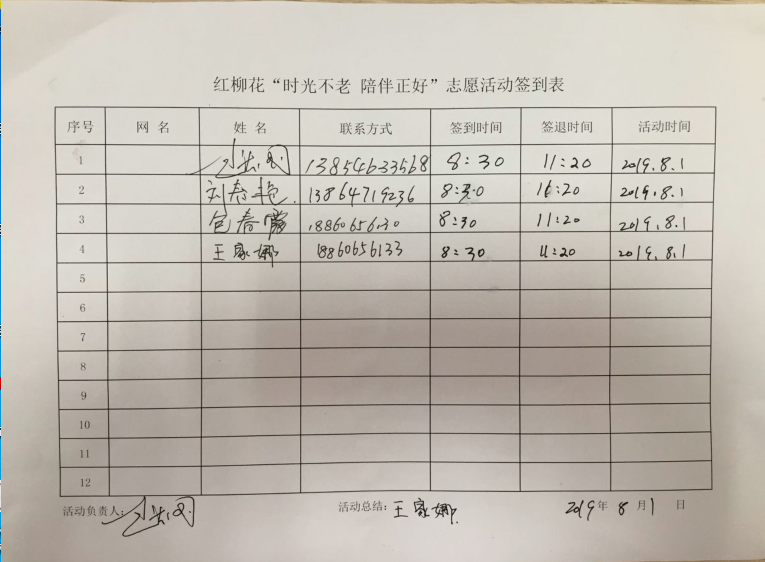 红柳花“时光不老 陪伴正好”志愿活动签到表
序号 网 名 姓 名 联系方式 签到时间 签退时间 活动时间
1 13854633568 8:30 11:20 2019.8.1
2 刘春艳 13864719236 8:30 11:20 2019.8.1
3 包春 8:30 11:20 2019.8.1
4 王家娜 18860656133 8:30 11:20 2019.8.1
5
6
7
8
9
10
11
12
活动负责人: 活动总结:王家娜 2019年 8月1日